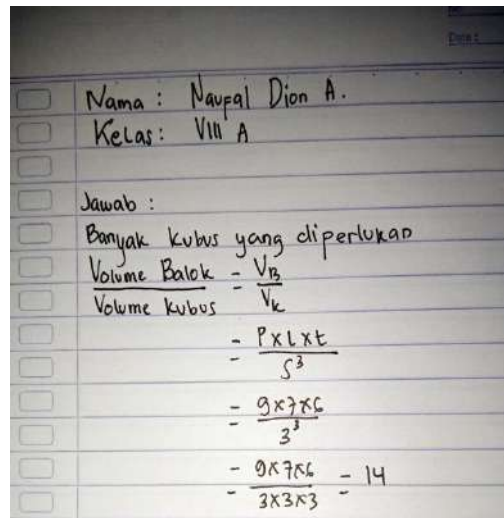 Nama : Naufal Dion A.
Kelas : VIII A
Jawab :
Banyak kubus yang diperlukan
Volume Balok = VB
Volume kubus VK
= P x l x t
S³
= 9x7x6
3³
= 9x7x6 = 14
3x3x3